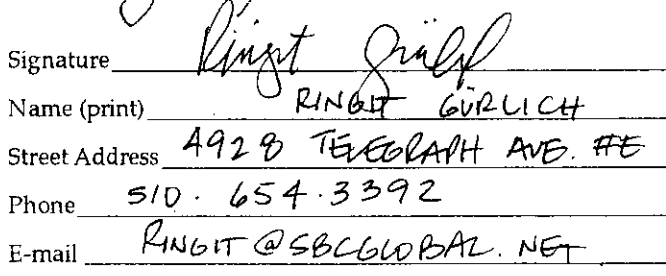 Signature Ringit
Name (print) RINGIT GÜRLICH
Street Address 4928 TELEGRAPH AVE. #E
Phone 510. 654.3392
E-mail RINGIT@SBCGLOBAL.NET